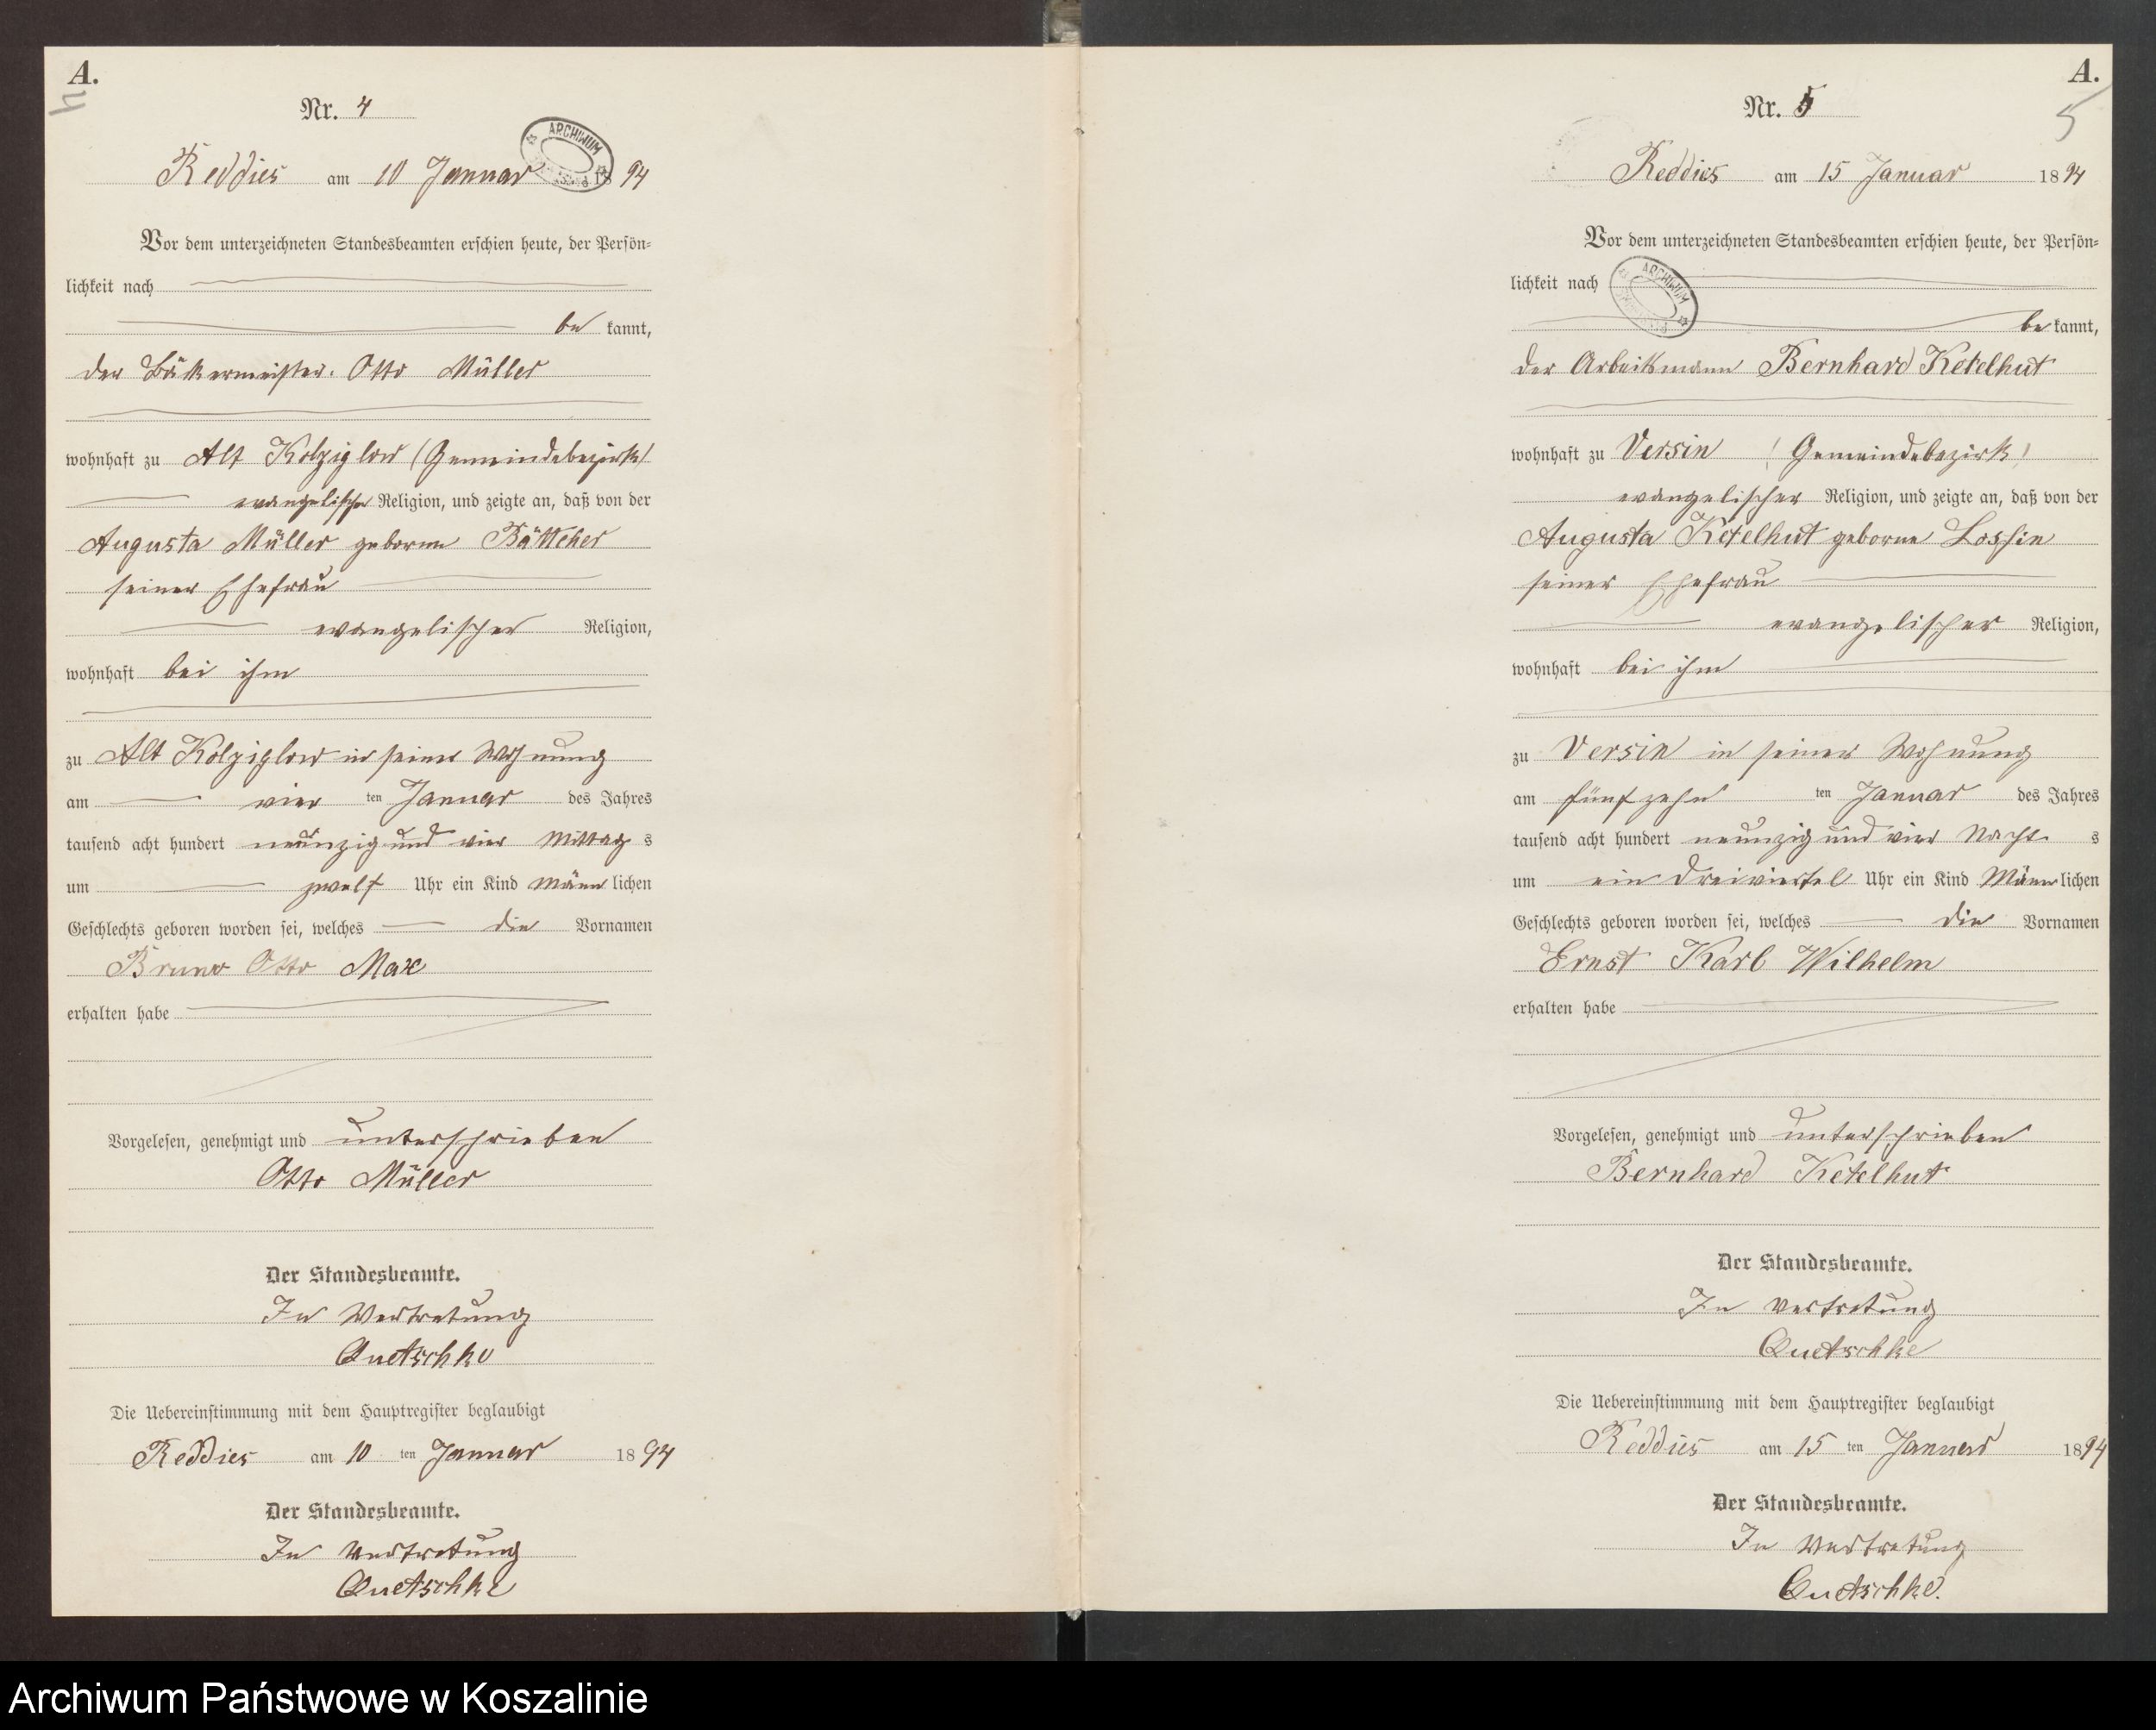 A.
4
Nr. 4
ARCHIWUM
Reddies am 10 Januar 1894
Vor dem unterzeichneten Standesbeamten erschien heute, der Persön-
lichkeit nach
be kannt,
der Bäckermeister Otto Müller
wohnhaft zu Alt Kolziglow (Gemeindebezirk)
evangelischer Religion, und zeigte an, daß von der
Augusta Müller geborne Böttcher
seiner Ehefrau
evangelischer Religion,
wohnhaft bei ihm
zu Alt Kolziglow in seiner Wohnung
am vier ten Januar des Jahres
tausend acht hundert neunzig und vier Mittag s
um zwölf Uhr ein Kind männ lichen
Geschlechts geboren worden sei, welches die Vornamen
Bruno Otto Max
erhalten habe
Vorgelesen, genehmigt und unterschrieben
Otto Müller
Der Standesbeamte.
In Vertretung
Quetschke
Die Uebereinstimmung mit dem Hauptregister beglaubigt
Reddies am 10 ten Januar 1894
Der Standesbeamte.
In Vertretung
Quetschke
A.
5
Nr. 5
Reddies am 15 Januar 1894
Vor dem unterzeichneten Standesbeamten erschien heute, der Persön-
lichkeit nach
ARCHIWUM
be kannt,
der Arbeitsmann Bernhard Ketelhut
wohnhaft zu Versin (Gemeindebezirk)
evangelischer Religion, und zeigte an, daß von der
Augusta Ketelhut geborne Lossin
seiner Ehefrau
evangelischer Religion,
wohnhaft bei ihm
zu Versin in seiner Wohnung
am fünfzehn ten Januar des Jahres
tausend acht hundert neunzig und vier Nacht s
um ein dreiviertel Uhr ein Kind Männ lichen
Geschlechts geboren worden sei, welches die Vornamen
Ernst Karl Wilhelm
erhalten habe
Vorgelesen, genehmigt und unterschrieben
Bernhard Ketelhut
Der Standesbeamte.
In Vertretung
Quetschke
Die Uebereinstimmung mit dem Hauptregister beglaubigt
Reddies am 15 ten Januar 1894
Der Standesbeamte.
In Vertretung
Quetschke.
Archiwum Państwowe w Koszalinie